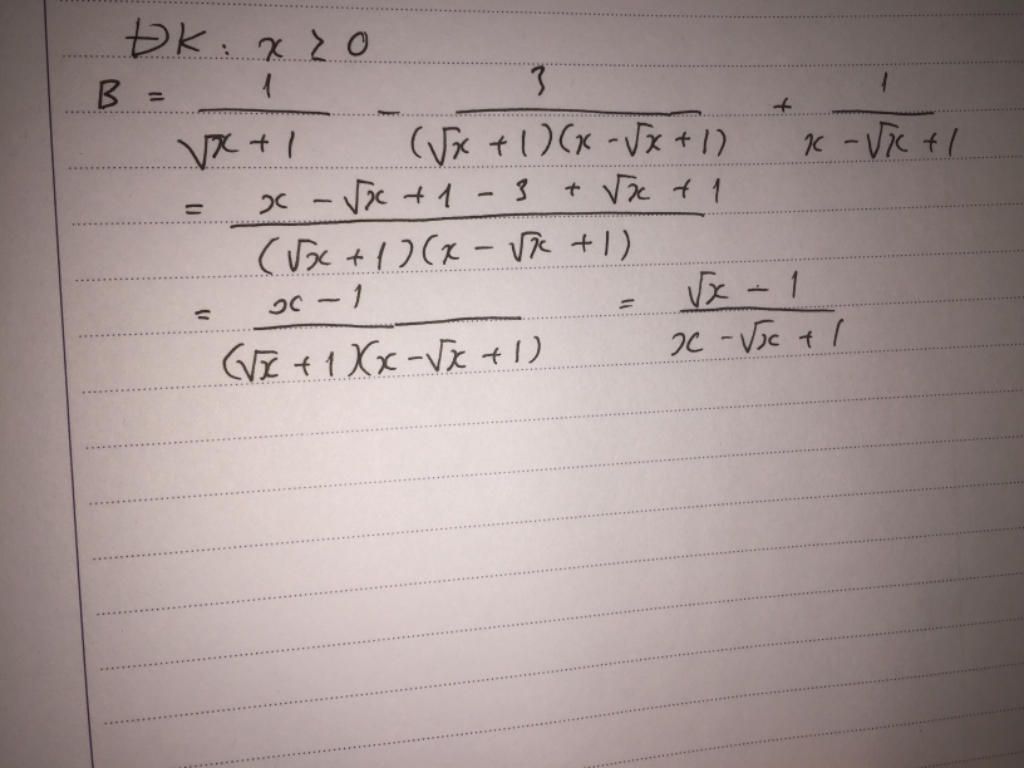 ĐK: x ≥ 0
B = 1/(√x + 1) - 3/((√x + 1)(x - √x + 1)) + 1/(x - √x + 1)
= (x - √x + 1 - 3 + √x + 1)/((√x + 1)(x - √x + 1))
= (x - 1)/((√x + 1)(x - √x + 1)) = (√x - 1)/(x - √x + 1)